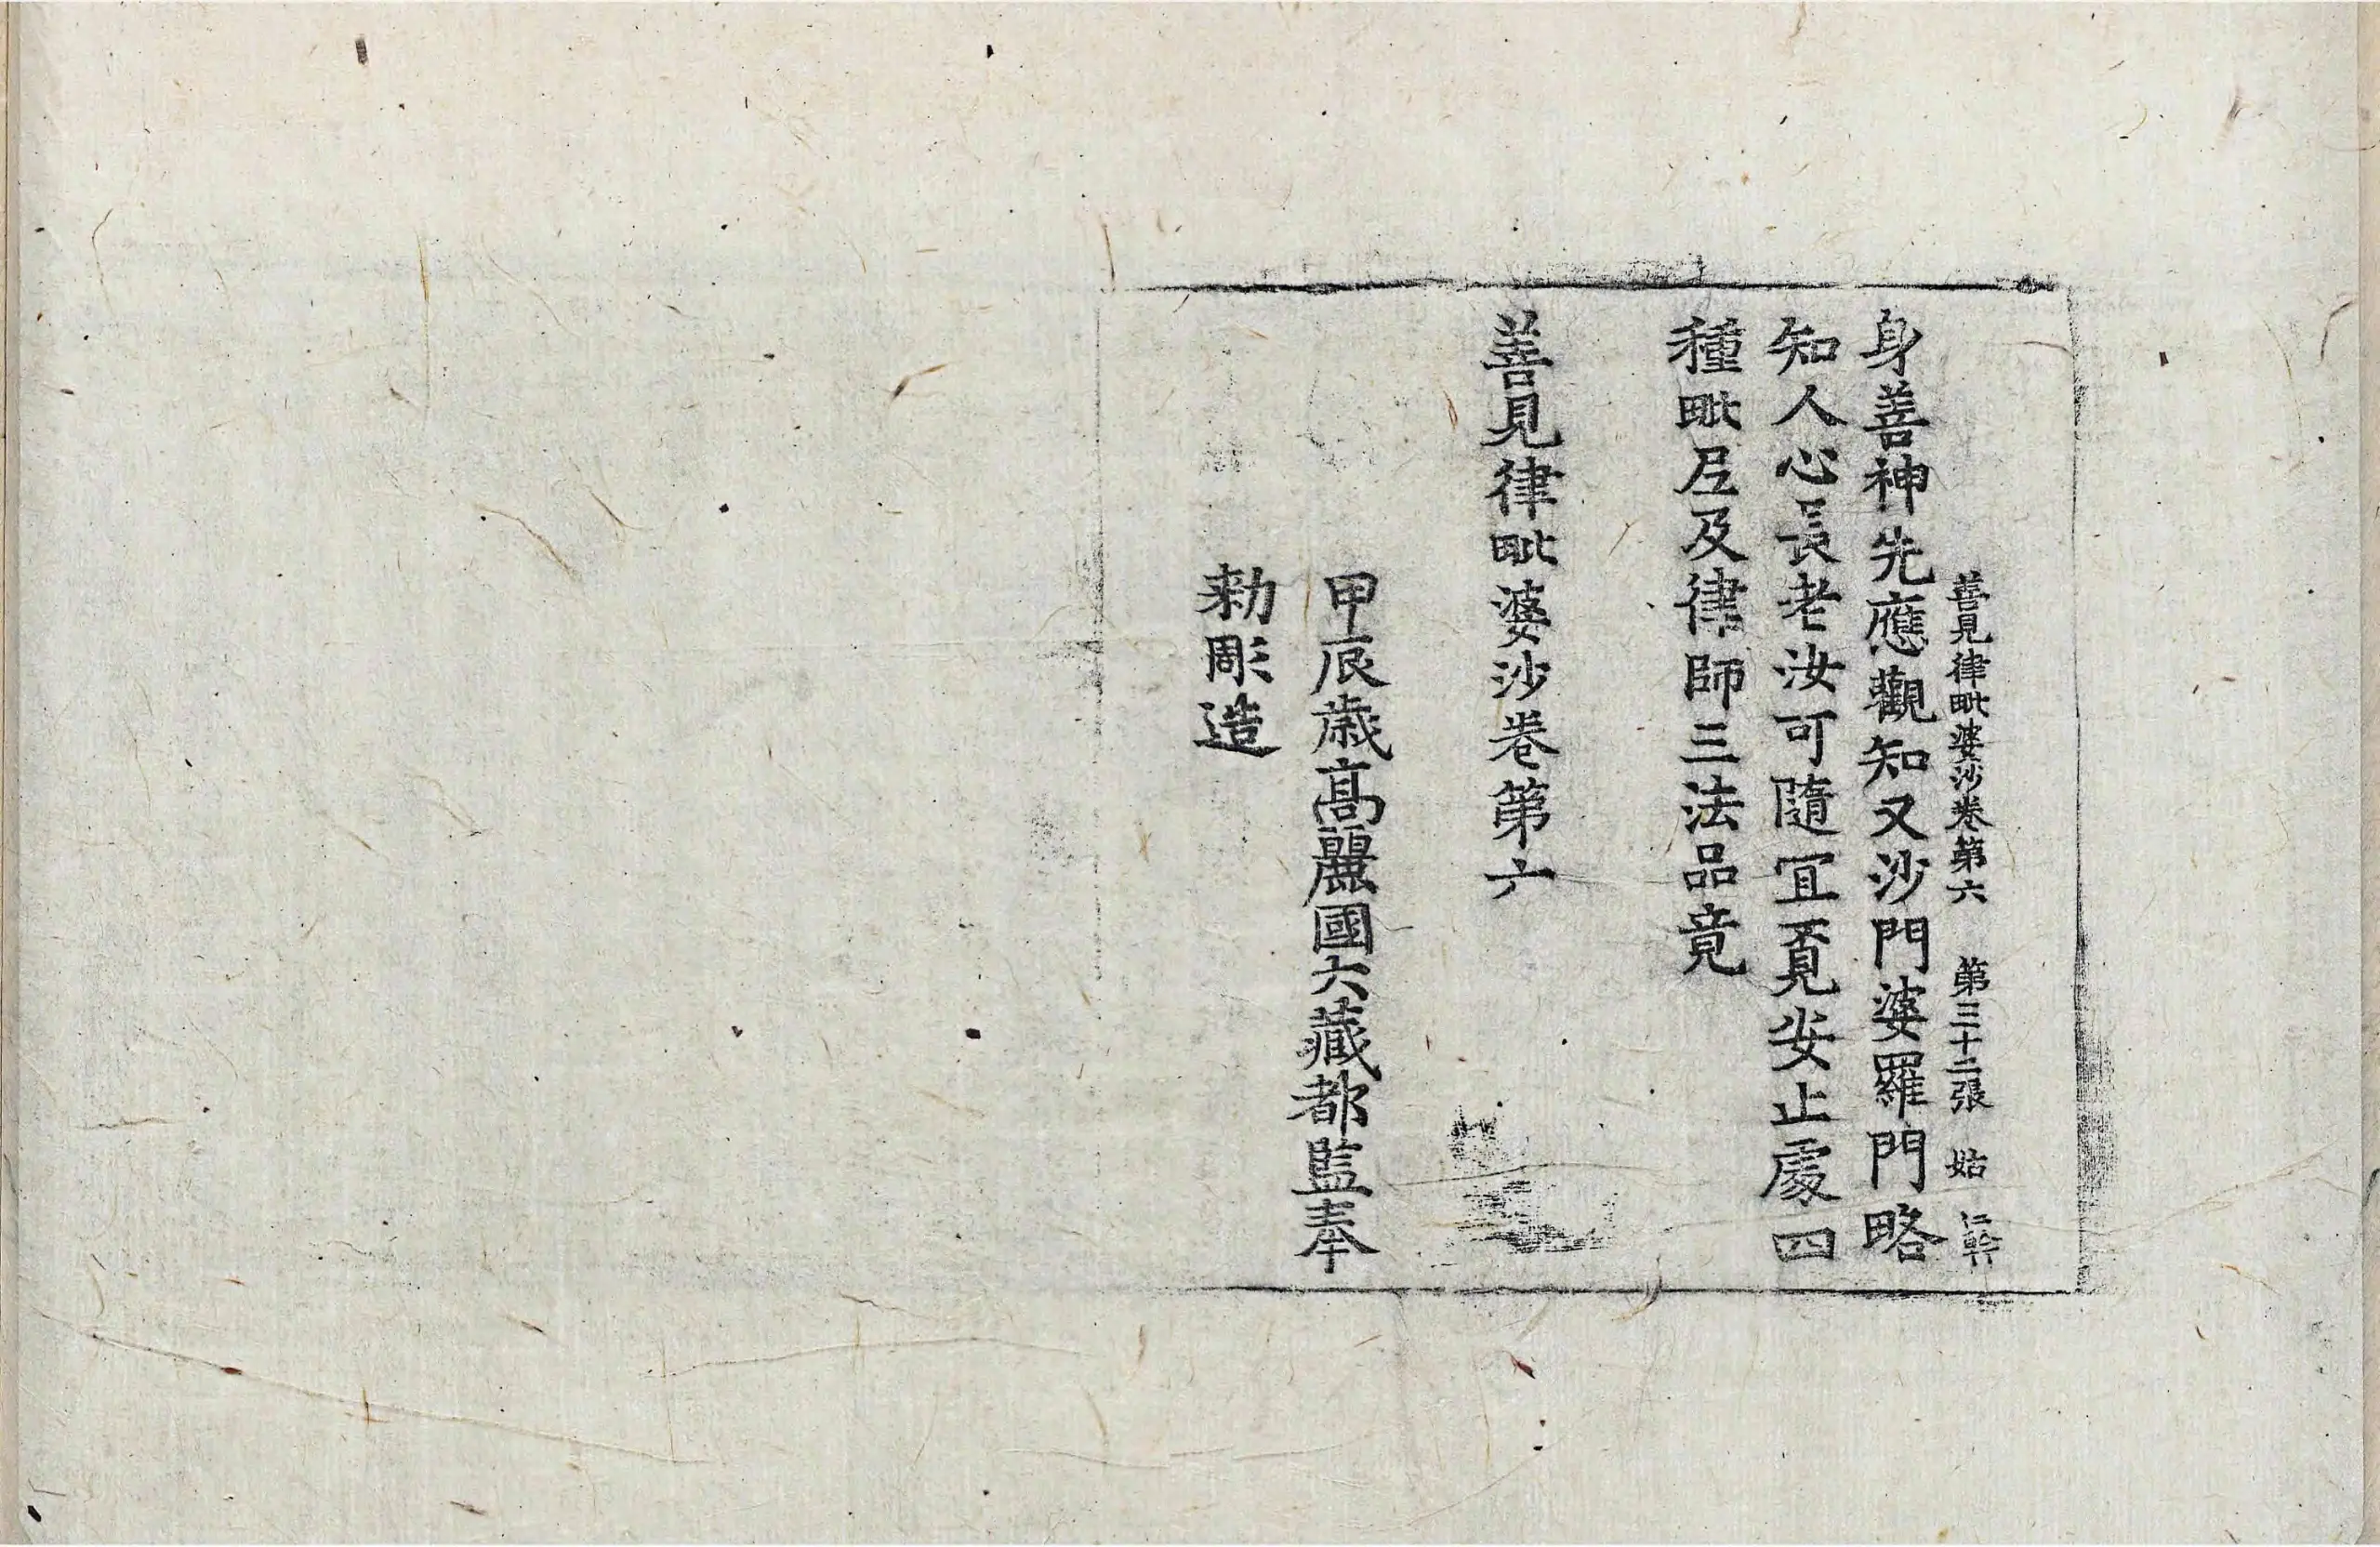 善見律毗婆沙卷第六　第三十二張　姑
身善神先應觀知又沙門婆羅門略
知人心長老汝可隨冝覔安止處四
種毗尼及律師三法品竟
善見律毗婆沙卷第六
甲辰歲高麗國大藏都監奉
勑彫造